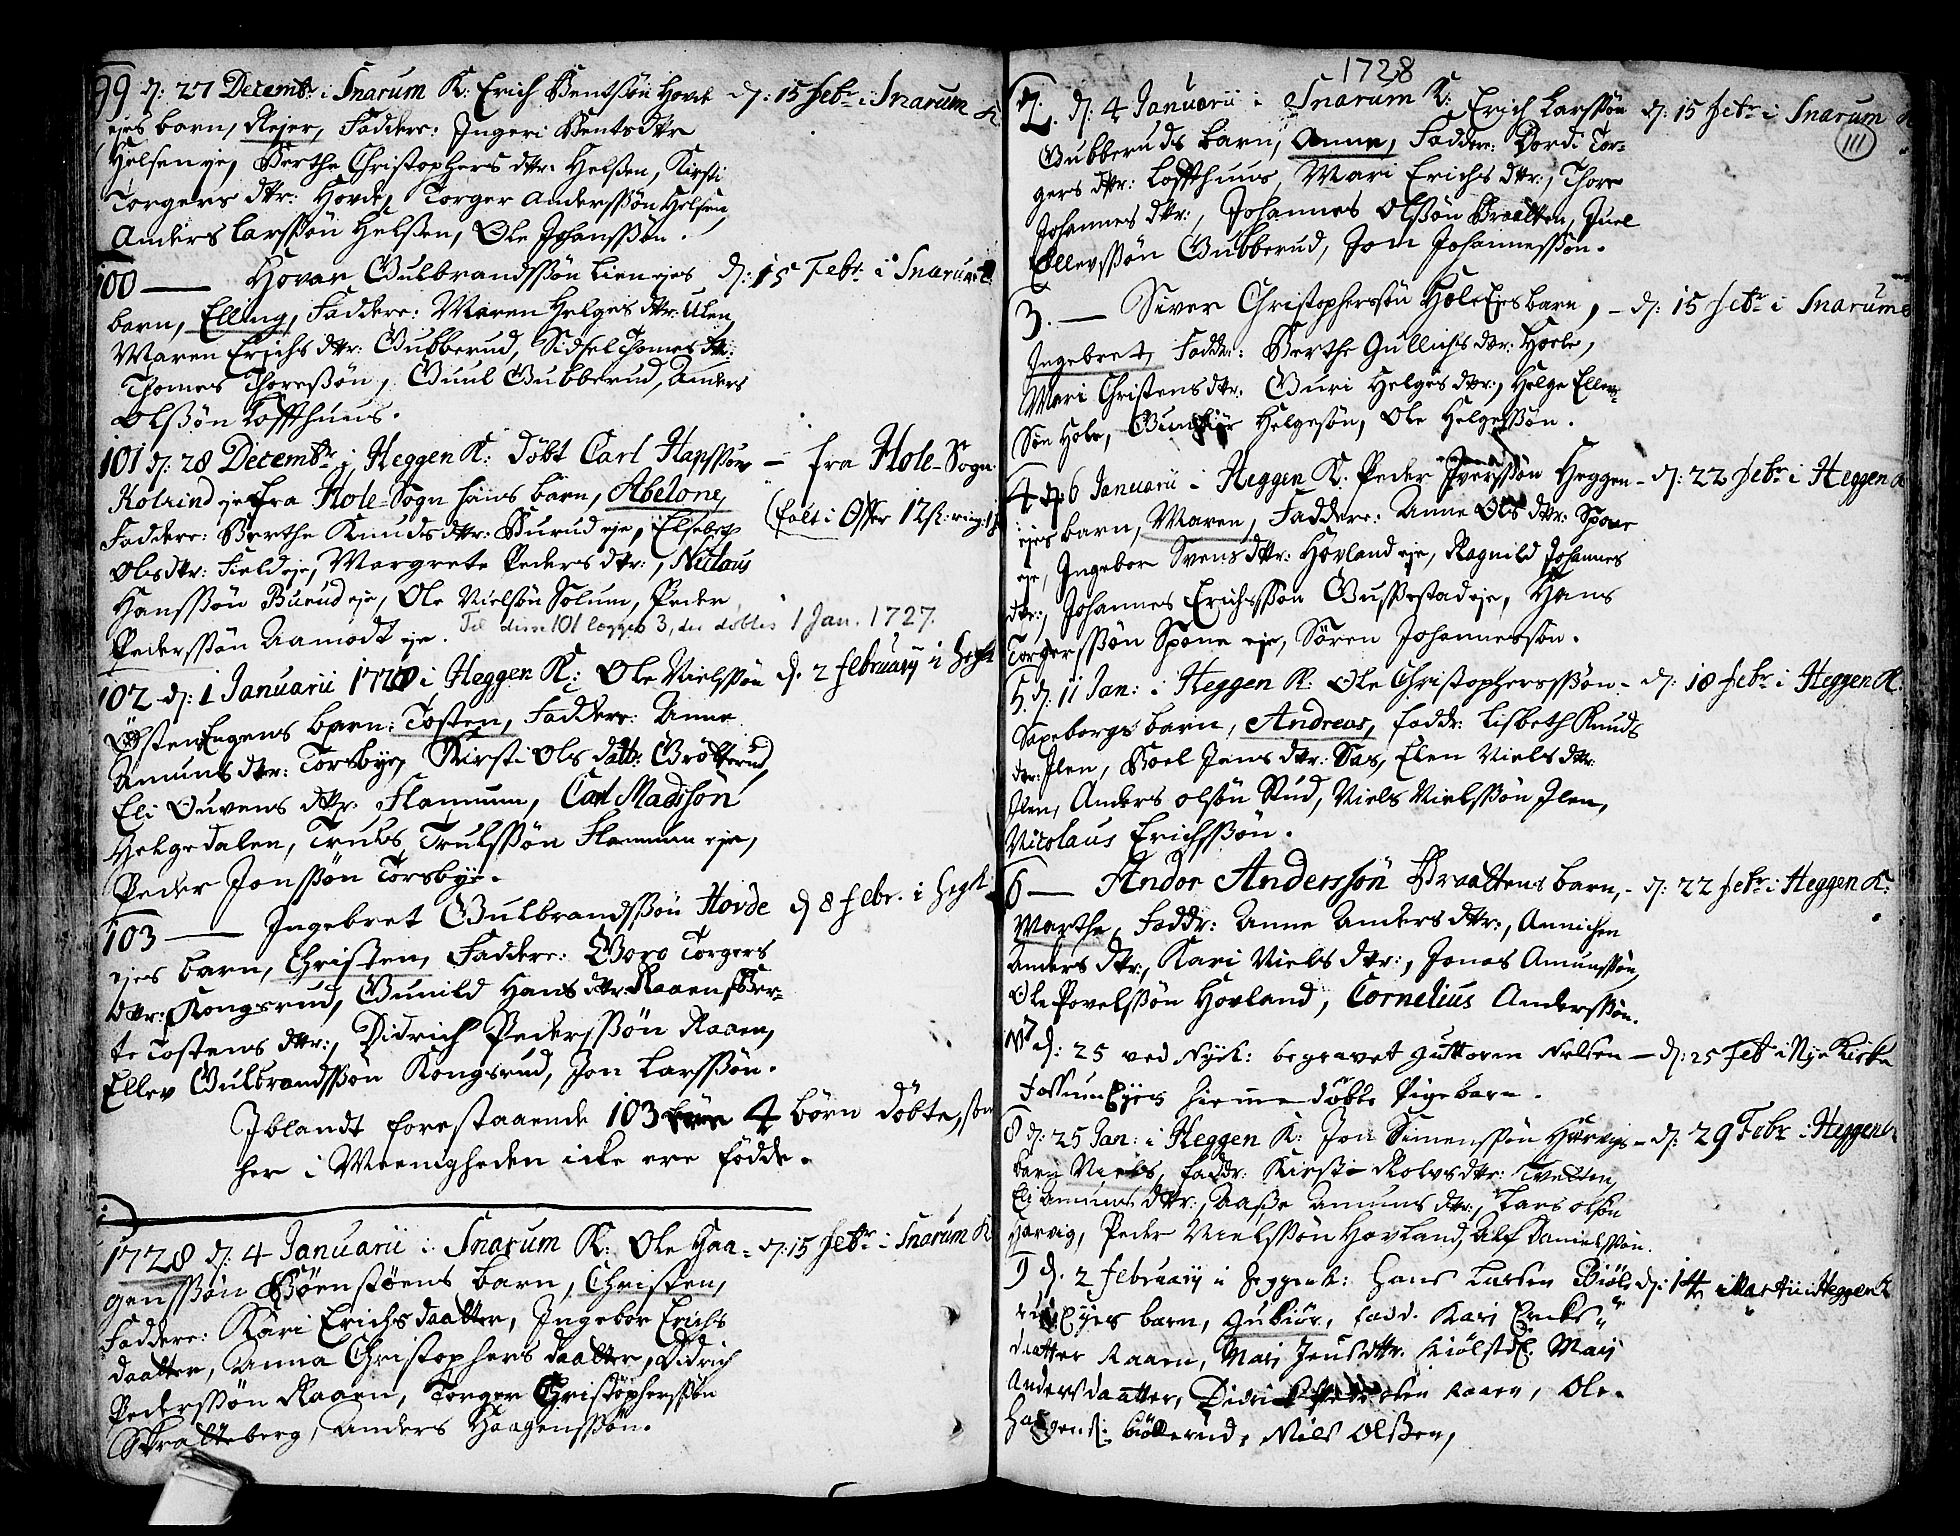 99 d: 27 Decembr: i Snarum K: Erich Bentssøn Hovde d: 15 Febr: i Snarum K
ejes barn, Rejer, Faddere: Ingeri Bents dtr
Helsen eje, Berthe Christophers dtr: Helsen, Kirsti
Torgers dtr: Hovde, Torger Anderssøn Helsen,
Anders Larssøn Helsen, Ole Johanssøn.
100 — Hovar Gulbrandssøn Lien ejes d: 15 Febr: i Snarum K
barn, Elling, Faddere: Maren Helges dtr: Ulen,
Maren Erichs dtr: Gubberud, Sidsel Thomes dtr:
Thomes Thoressøn, Guul Gubberud, Anders
Olssøn Loffthuus.
101 d: 28 Decembr: i Heggen K: døbt Carl Hapssøn — fra Hole-Sogn
Kolrind eje fra Hole-Sogn hans barn, Abelone,
(falt i Offer 12 sk:
Faddere: Berthe Knuds dtr: Burud eje, Elsebet
Ols dtr: Field eje, Margrete Peders dtr:, Niclaus
Hanssøn Burud eje, Ole Nielssøn Solum, Peder
Pederssøn Aamodt eje. Til disse 101 lægges 3, der døbtes 1 Jan. 1727.
102 d: 1 Januarii 1728 i Heggen K: Ole Nielssøn d. 2 februarij i Hegk
Østen Engens barn: Tosten, Faddere: Anne
Amuns dtr: Torsbye, Kirsti Ols datt: Grøtterud,
Eli Ouvens dtr: Flannum, Carl Madssøn
Helgedalen, Truls Trulssøn Flannum eje,
Peder Jonssøn Torsbye.
103 — Ingebret Gulbrandssøn Hovde d 8 febr. i Hegk
ejes barn, Christen, Faddere: Goro Torgers
dtr: Kongsrud, Gunild Hans dtr Raaen, Ber-
te Tostens dtr:, Didrich Pederssøn Raaen,
Ellev Gulbrandssøn Kongsrud, Jon Larssøn.
Iblandt forestaaende 103 ere 4 børn døbte, som
her i Meenigheden icke ere fødde.
1728 d: 4 Januarii i Snarum K: Ole Haa- d: 15 Febr: i Snarum K
genssøn Bøenstøens barn, Christen,
Faddere: Kari Erichs daatter, Ingebor Erichs
daatter, Anna Christophers daatter, Didrich
Pederssøn Raaen, Torger Christopherssøn
Skralteberg, Anders Haagenssøn.
1728
111
2. d: 4 Januarii i Snarum K: Erich Larssøn d: 15 Febr: i Snarum K
Gubberuds barn, Anne, Faddere: Dordi Tor-
gers dtr: Loffthuus, Mari Erichs dtr:, Thore
Johannes dtr:, Johannes Olssøn Braatten, Juel
Ellevssøn Gubberud, Jon Johannessøn.
3. — Siver Christopherssøn Hole Ejes barn, — d: 15 Febr: i Snarum
Ingebret, Fadder: Berthe Gullichs dtr: Hoele,
Mari Christens dtr: Guri Helges dtr:, Helge Ellev-
søn Hole, Helgesøn, Ole Helgessøn.
4 d: 6 Januarii i Heggen K: Peder Iverssøn Heggen — d: 22 Febr: i Heggen K
ejes barn, Maren, Faddere: Anne Ols dtr: Spone
eje, Ingebor Svens dtr: Hovland eje, Ragnild Johannes
dtr:, Johannes Erichssøn Gussestad eje, Hans
Torgerssøn Spone eje, Søren Johannessøn.
5. d: 11 Jan: i Heggen K: Ole Christopherssøn — d: 18 Febr: i Heggen K:
Saxeborgs barn, Andreas, Faddr: Lisbeth Knuds
dtr: Ilen, Boel Jens dtr: Sas, Elen Niels dtr:
Ilen, Anders Olsøn Stud, Niels Nielssøn Ilen,
Nicolaus Erichssøn.
6 — Andor Anderssøn Braattens barn, — d: 22 Febr: i Heggen K:
Marthe, Faddr: Anne Anders dtr:, Annichen
Anders dtr:, Kari Niels dtr:, Jonas Amunssøn,
Ole Povelssøn Hovland, Cornelius Anderssøn.
7 d: 25 ved Nyek: begravet Guttorm Nelsen — d: 25 Feb i Nye Kirke
Fossum Eyes hiemme døbte Pigebarn.
8 d: 25 Jan: i Heggen K: Jon Simenssøn Horvigs — d: 29 Febr: i Heggen K
barn Niels, Faddr: Kirsti Rolvs dtr: Tvedten,
Eli Amuns dtr:, Aasse Amuns dtr:, Lars Olssøn
Horvig, Peder Nielssøn Hovland, Alf Danielssøn.
9 d. 2 februarij i Heggen K: Hans Larsen Biøle d: 1 Martii i Heggen K
rud Eyes barn, Gubiør, Fadd. Kari Erichs
daatter Raaen, Mari Jens dttr. Mari
Anders daatter, Didrich Pedersen Raaen, Ole
Haagens: Biølerud, Niels Olssen,